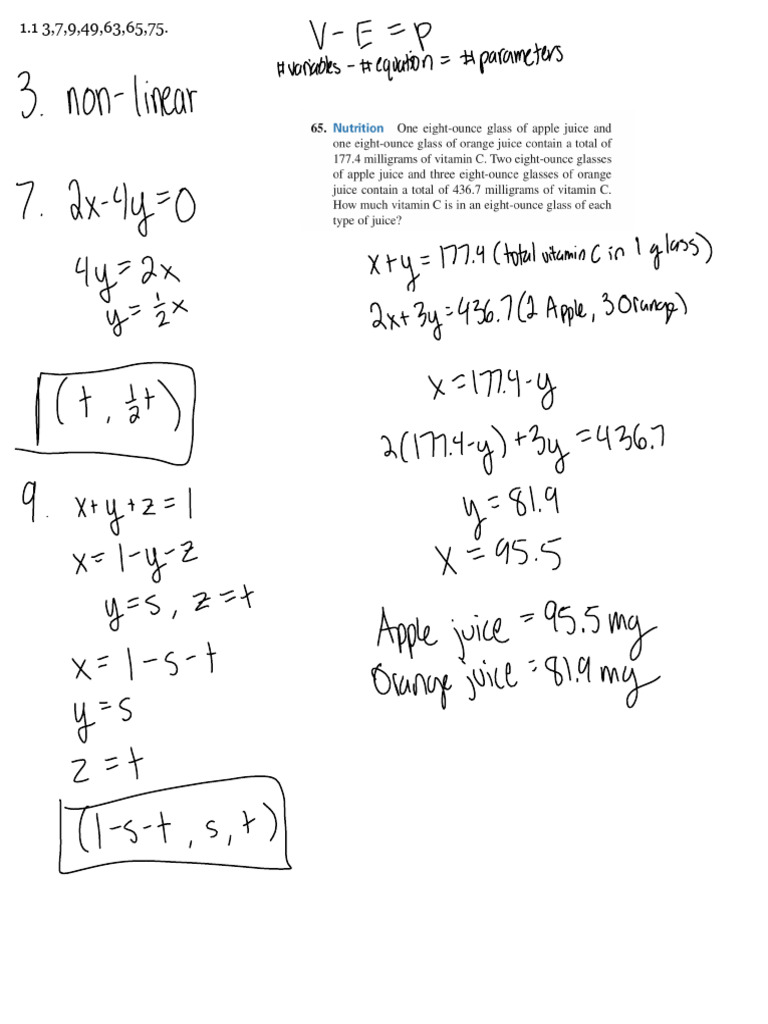 1.1 3,7,9,49,63,65,75.
V - E = P
#variables - #equation = #parameters
3. non-linear
7. 2x-4y=0
4y=2x
y=½x
(t, ½t)
9. x+y+z=1
x=1-y-z
y=s, z=t
x=1-s-t
y=s
z=t
(1-s-t, s, t)
65. Nutrition One eight-ounce glass of apple juice and
one eight-ounce glass of orange juice contain a total of
177.4 milligrams of vitamin C. Two eight-ounce glasses
of apple juice and three eight-ounce glasses of orange
juice contain a total of 436.7 milligrams of vitamin C.
How much vitamin C is in an eight-ounce glass of each
type of juice?
x+y=177.4 (total vitamin C in 1 glass)
2x+3y=436.7 (2 Apple, 3 Orange)
x=177.4-y
2(177.4-y)+3y=436.7
y=81.9
x=95.5
Apple juice = 95.5 mg
Orange juice = 81.9 mg